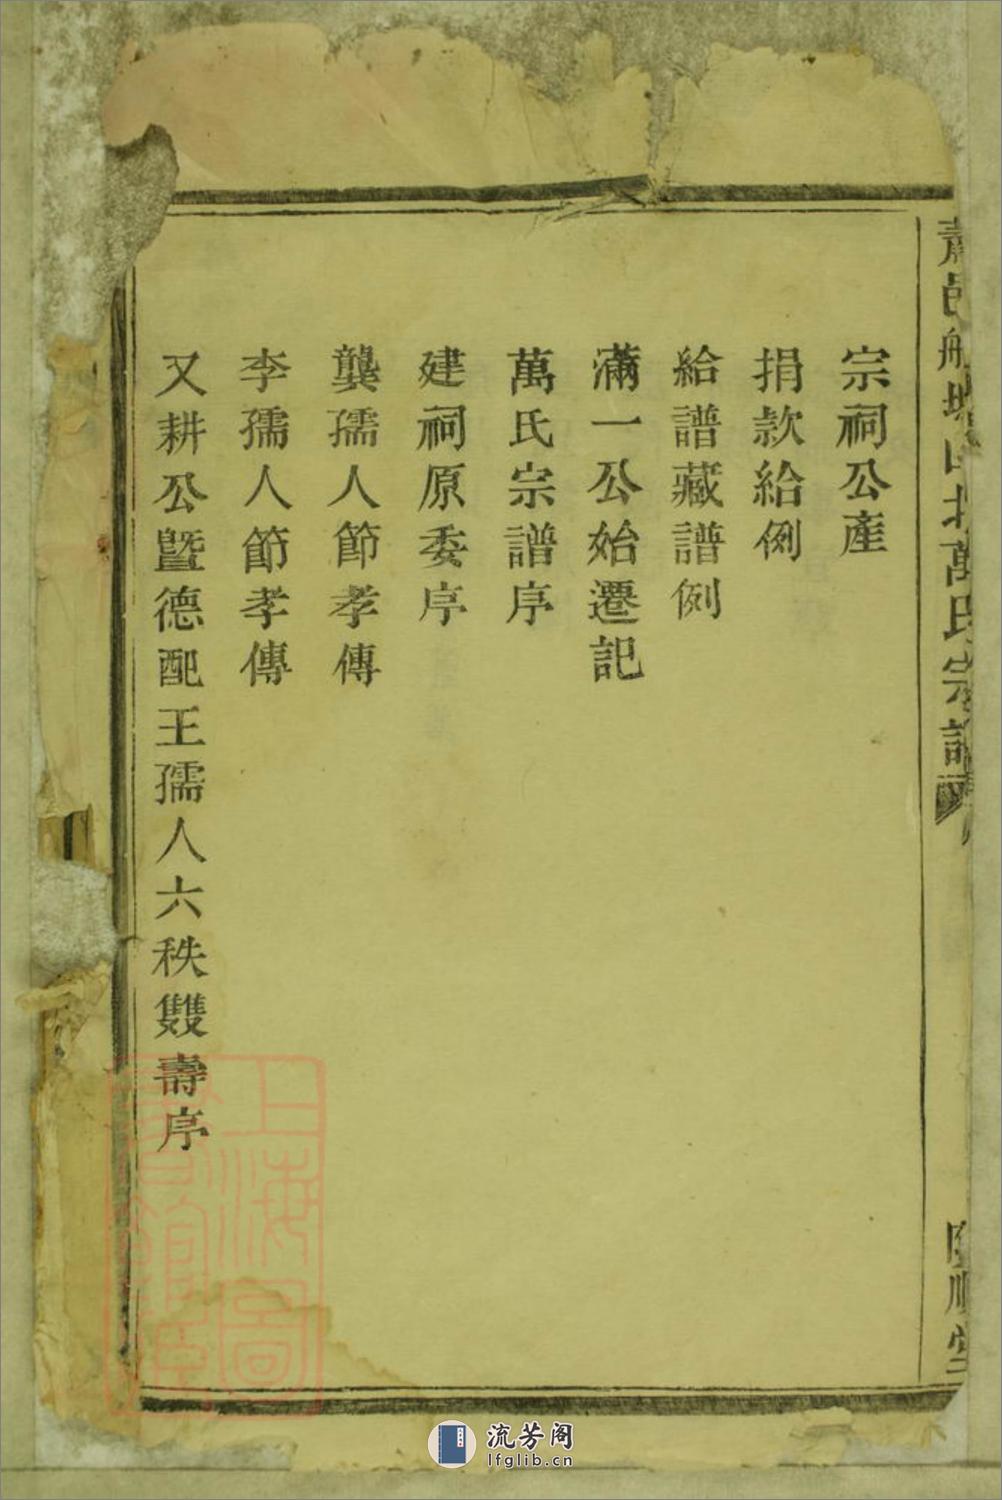 宗祠公產
捐款給例
給譜藏譜例
滿一公始遷記
萬氏宗譜序
建祠原委序
龔孺人節孝傳
李孺人節孝傳
又耕公暨德配王孺人六秩雙壽序
邑航塢山北萬氏宗譜
順堂
上海圖
書館藏
流芳阁
lfglib.cn